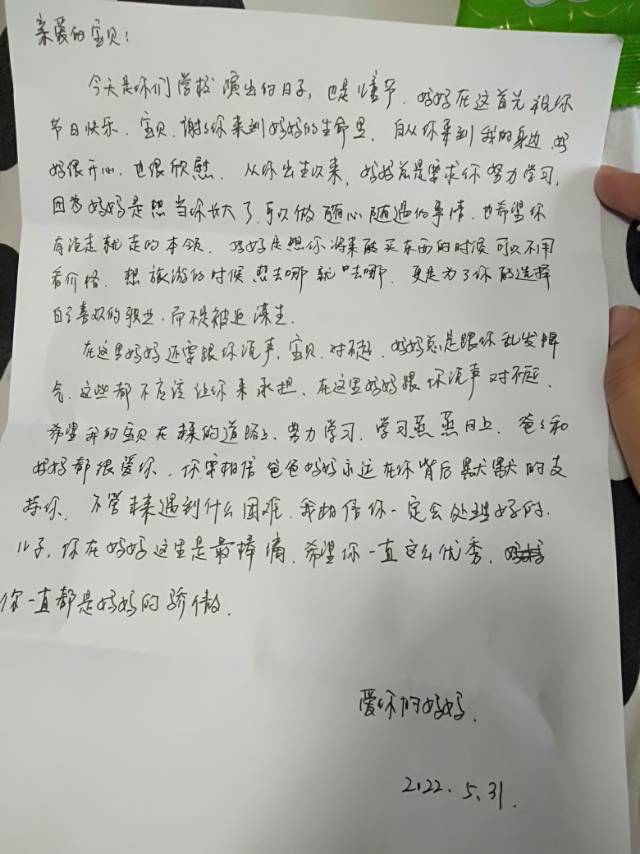 亲爱的宝贝：
今天是你们学校演出的日子，也是六一儿童节．妈妈在这首先祝你
节日快乐．宝贝．谢谢你来到妈妈的生命里．自从你来到我的身边，妈
妈很开心．也很欣慰．从你出生以来，妈妈总是要求你努力学习，
因为妈妈是想当你长大了．可以做随心随遇的事情．也希望你
有说走就走的本领．妈妈是想你将来能买东西的时候可以不用
看价格．想旅游的时候想去哪就去哪．更是为了你能选择
自己喜欢的职业．而不是被迫谋生．
在这里妈妈还要跟你说声．宝贝．对不起．妈妈总是跟你乱发脾
气．这些都不应该让你来承担．在这里妈妈跟你说声对不起．
希望我的宝贝在未来的道路上．努力学习．学习蒸蒸日上．爸爸和
妈妈都很爱你．你要相信爸爸妈妈永远在你背后默默的支
持你．不管未来遇到什么困难．我相信你一定会处理好的．
儿子，你在妈妈这里是最棒滴．希望你一直这么优秀．
你一直都是妈妈的骄傲．
爱你的妈妈．
2022．5．31．